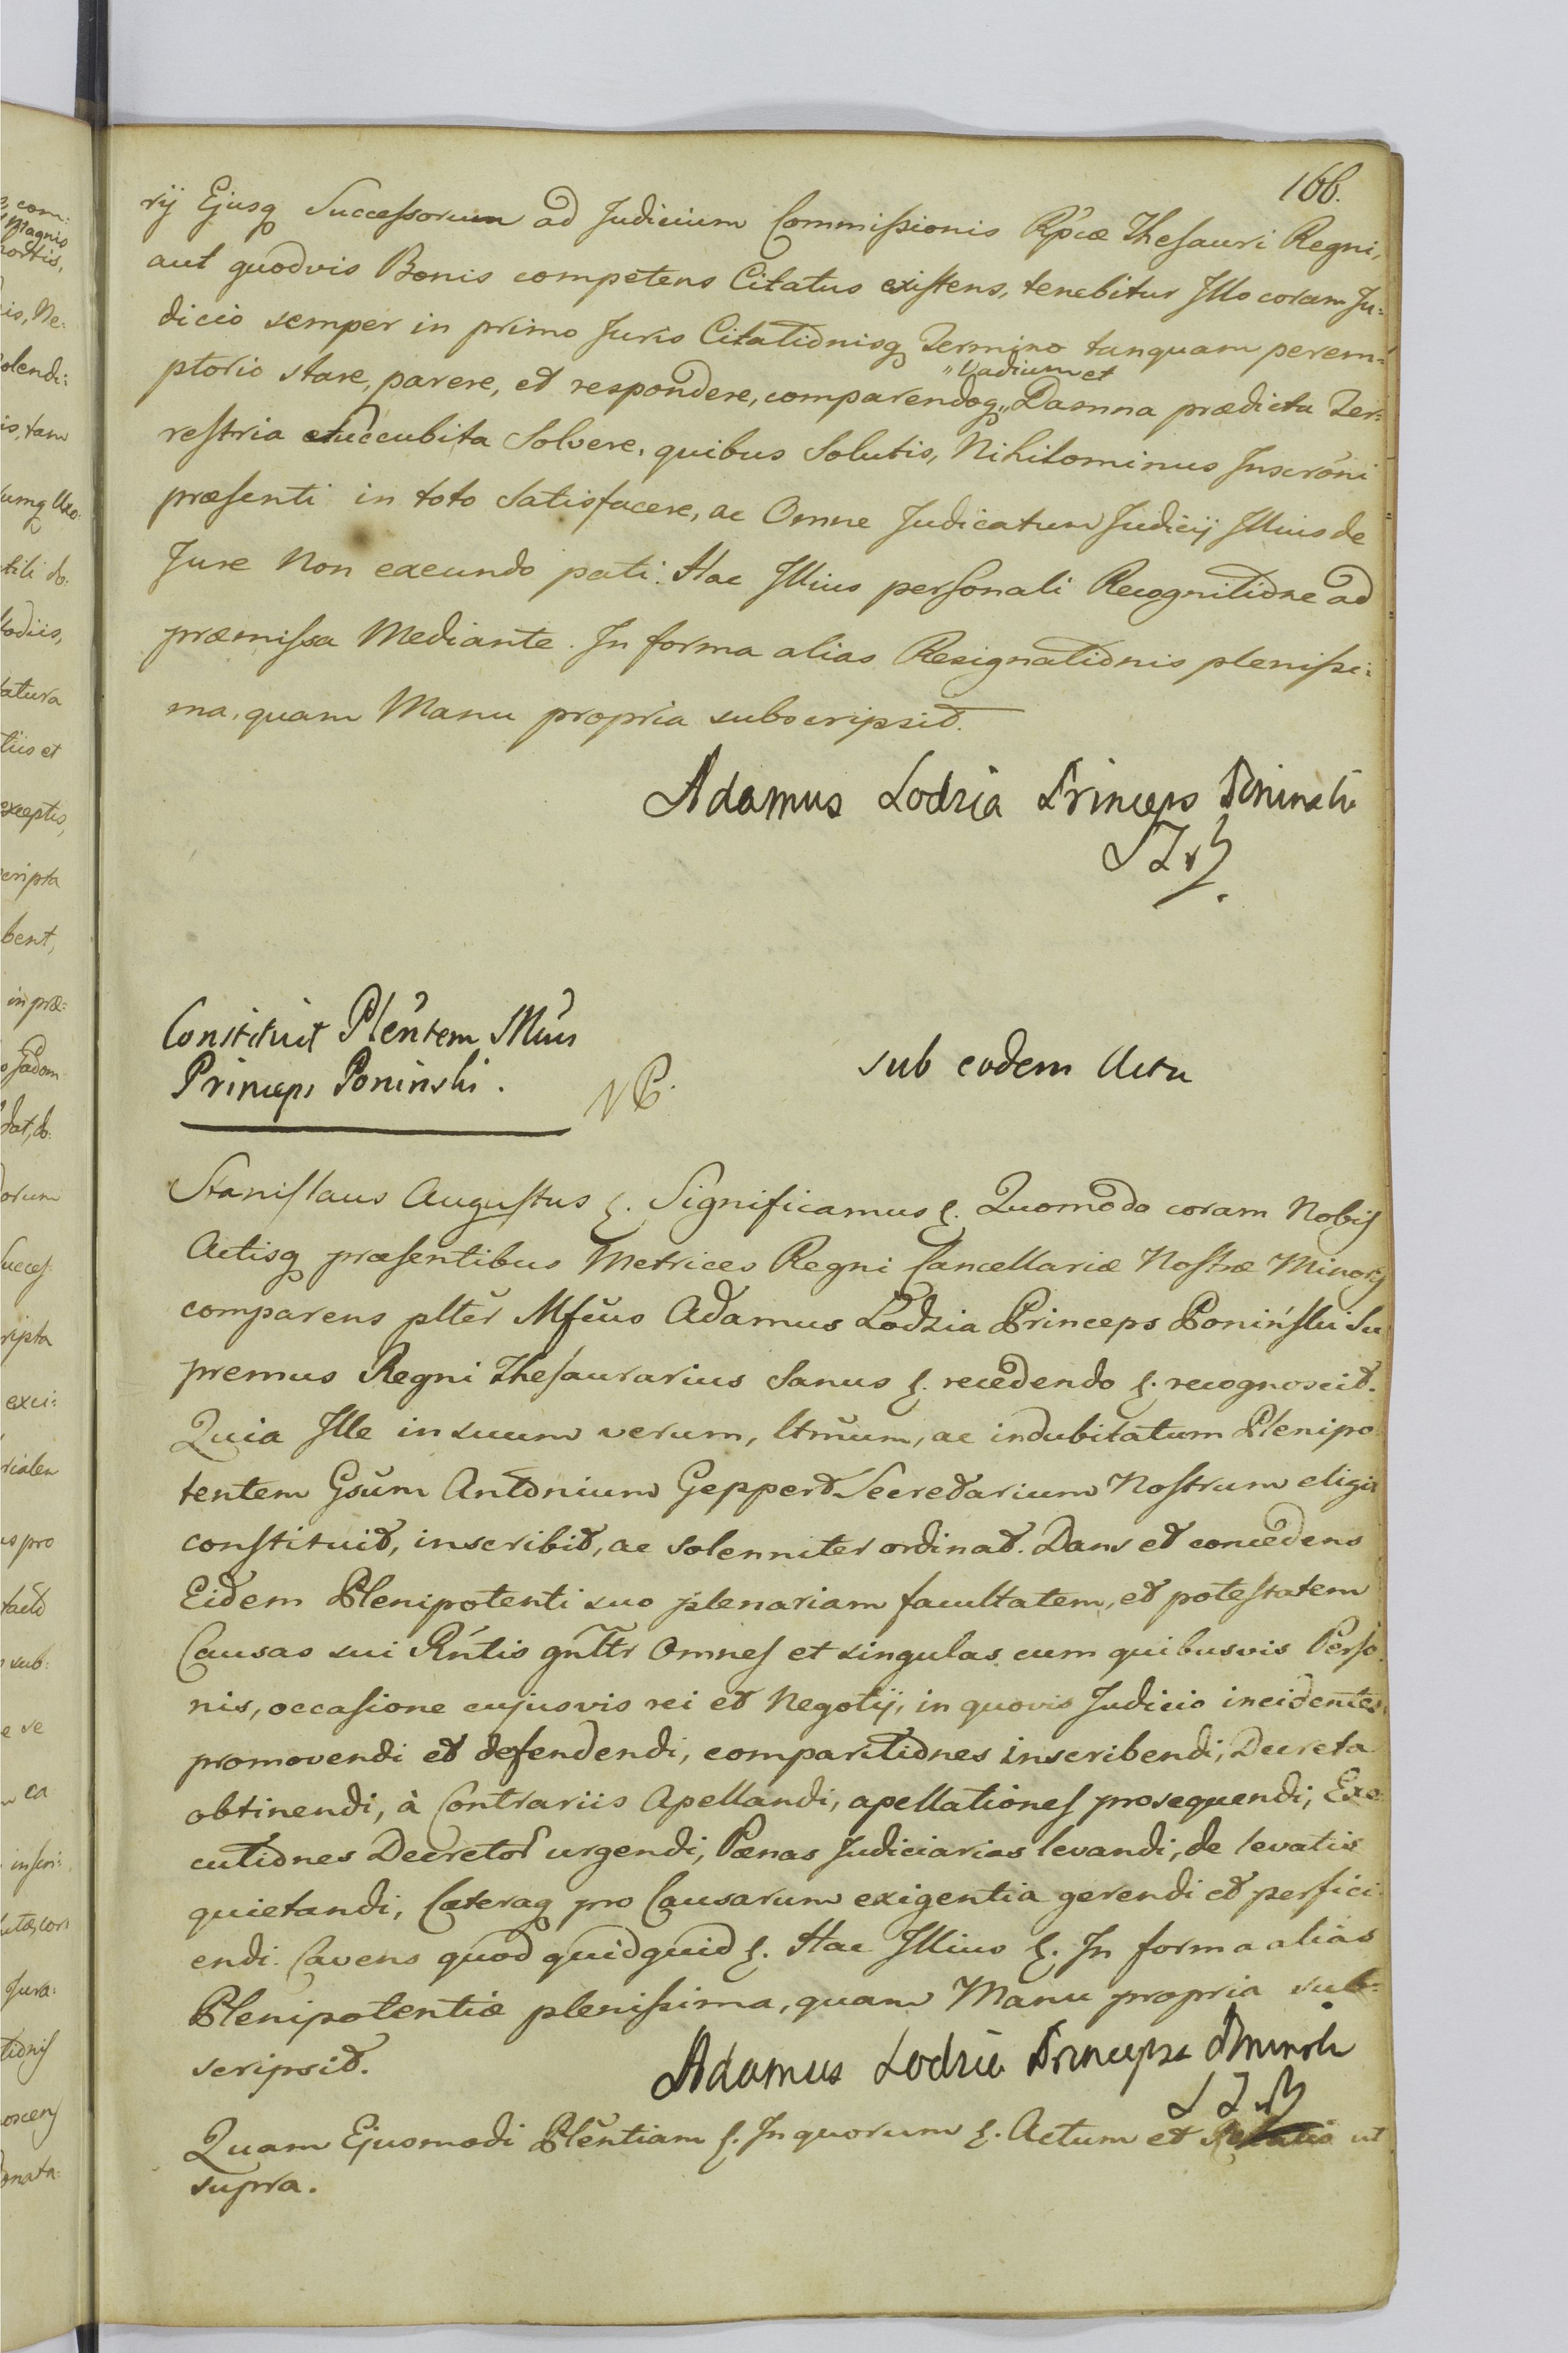 166.
rij Ejusq Successorum ad Judicium Commissionis Rpcæ Thesauri Regni,
aut quodvis Bonis competens Citatus existens, tenebitur Illo coram Ju=
dicio semper in primo Juris Citationisq Termino tanquam perem=
ptorio stare, parere, et respondere, comparendoq „Vadium et„ Damna prædicta Ter=
restria succubita solvere, quibus solutis, Nihilominus Inscrōni
præsenti in toto satisfacere, ac Omne Judicatum Judicij Illius de
Jure Non exeundo pati. Hac Illius personali Recognitione ad
præmissa Mediante. In forma alias Resignationis plenissi=
ma, quam Manu propria subscripsit.
Adamus Lodzia Princeps Poninski
Constituit Plentem Illius
Princeps Poninski.
NP.
sub eodem Actu
Stanislaus Augustus &. Significamus &. Quomodo coram Nobis
Actisq præsentibus Metrices Regni Cancellariæ Nostræ Minoris
comparens plter Mfcus Adamus Lodzia Princeps Poniński Su
premus Regni Thesaurarius sanus &. recedendo &. recognoscit.
Quia Ille in suum verum, ltmum, ac indubitatum Plenipo
tentem Gsum Antonium Geppert Secretarium Nostrum eligit
constituit, inscribit, ac solenniter ordinat. Dans et concedens
Eidem Plenipotenti suo plenariam facultatem, et potestatem
Causas sui Rńtis gnltr Omnes et singulas cum quibusvis Perso
nis, occasione cujusvis rei et Negotij, in quovis Judicio incidentes
promovendi et defendendi, comparitiones inscribendi, Decreta
obtinendi, à Contrariis Apellandi, apellationes prosequendi, Exe
cutiones Decretor urgendi, Pœnas Judiciarias levandi, de levatis
quietandi, Cæteraq pro Causarum exigentia gerendi et perfici
endi. Cavens quod quidquid &. Hac Illius &. In forma alias
Plenipotentiæ plenissima, quam Manu propria sub=
scripsit.
Adamus Lodzia Princeps Poninski
Quam Ejusmodi Plentiam &. In quorum &. Actum et ut
supra.